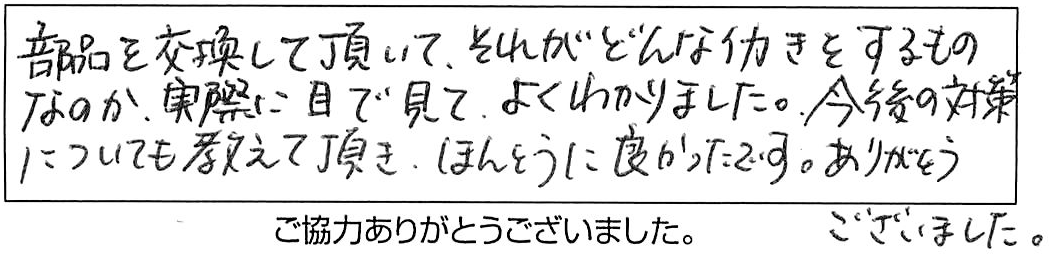 部品を交換して頂いて、それがどんな働きをするもの
なのか、実際に目で見て、よくわかりました。今後の対策
についても教えて頂き、ほんとうに良かったです。ありがとう
ございました。
ご協力ありがとうございました。